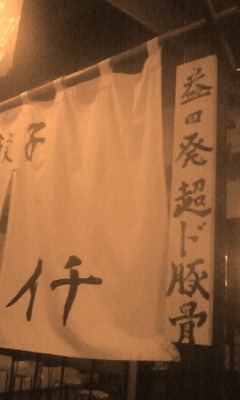 益田発 超ド豚骨
子
イチ